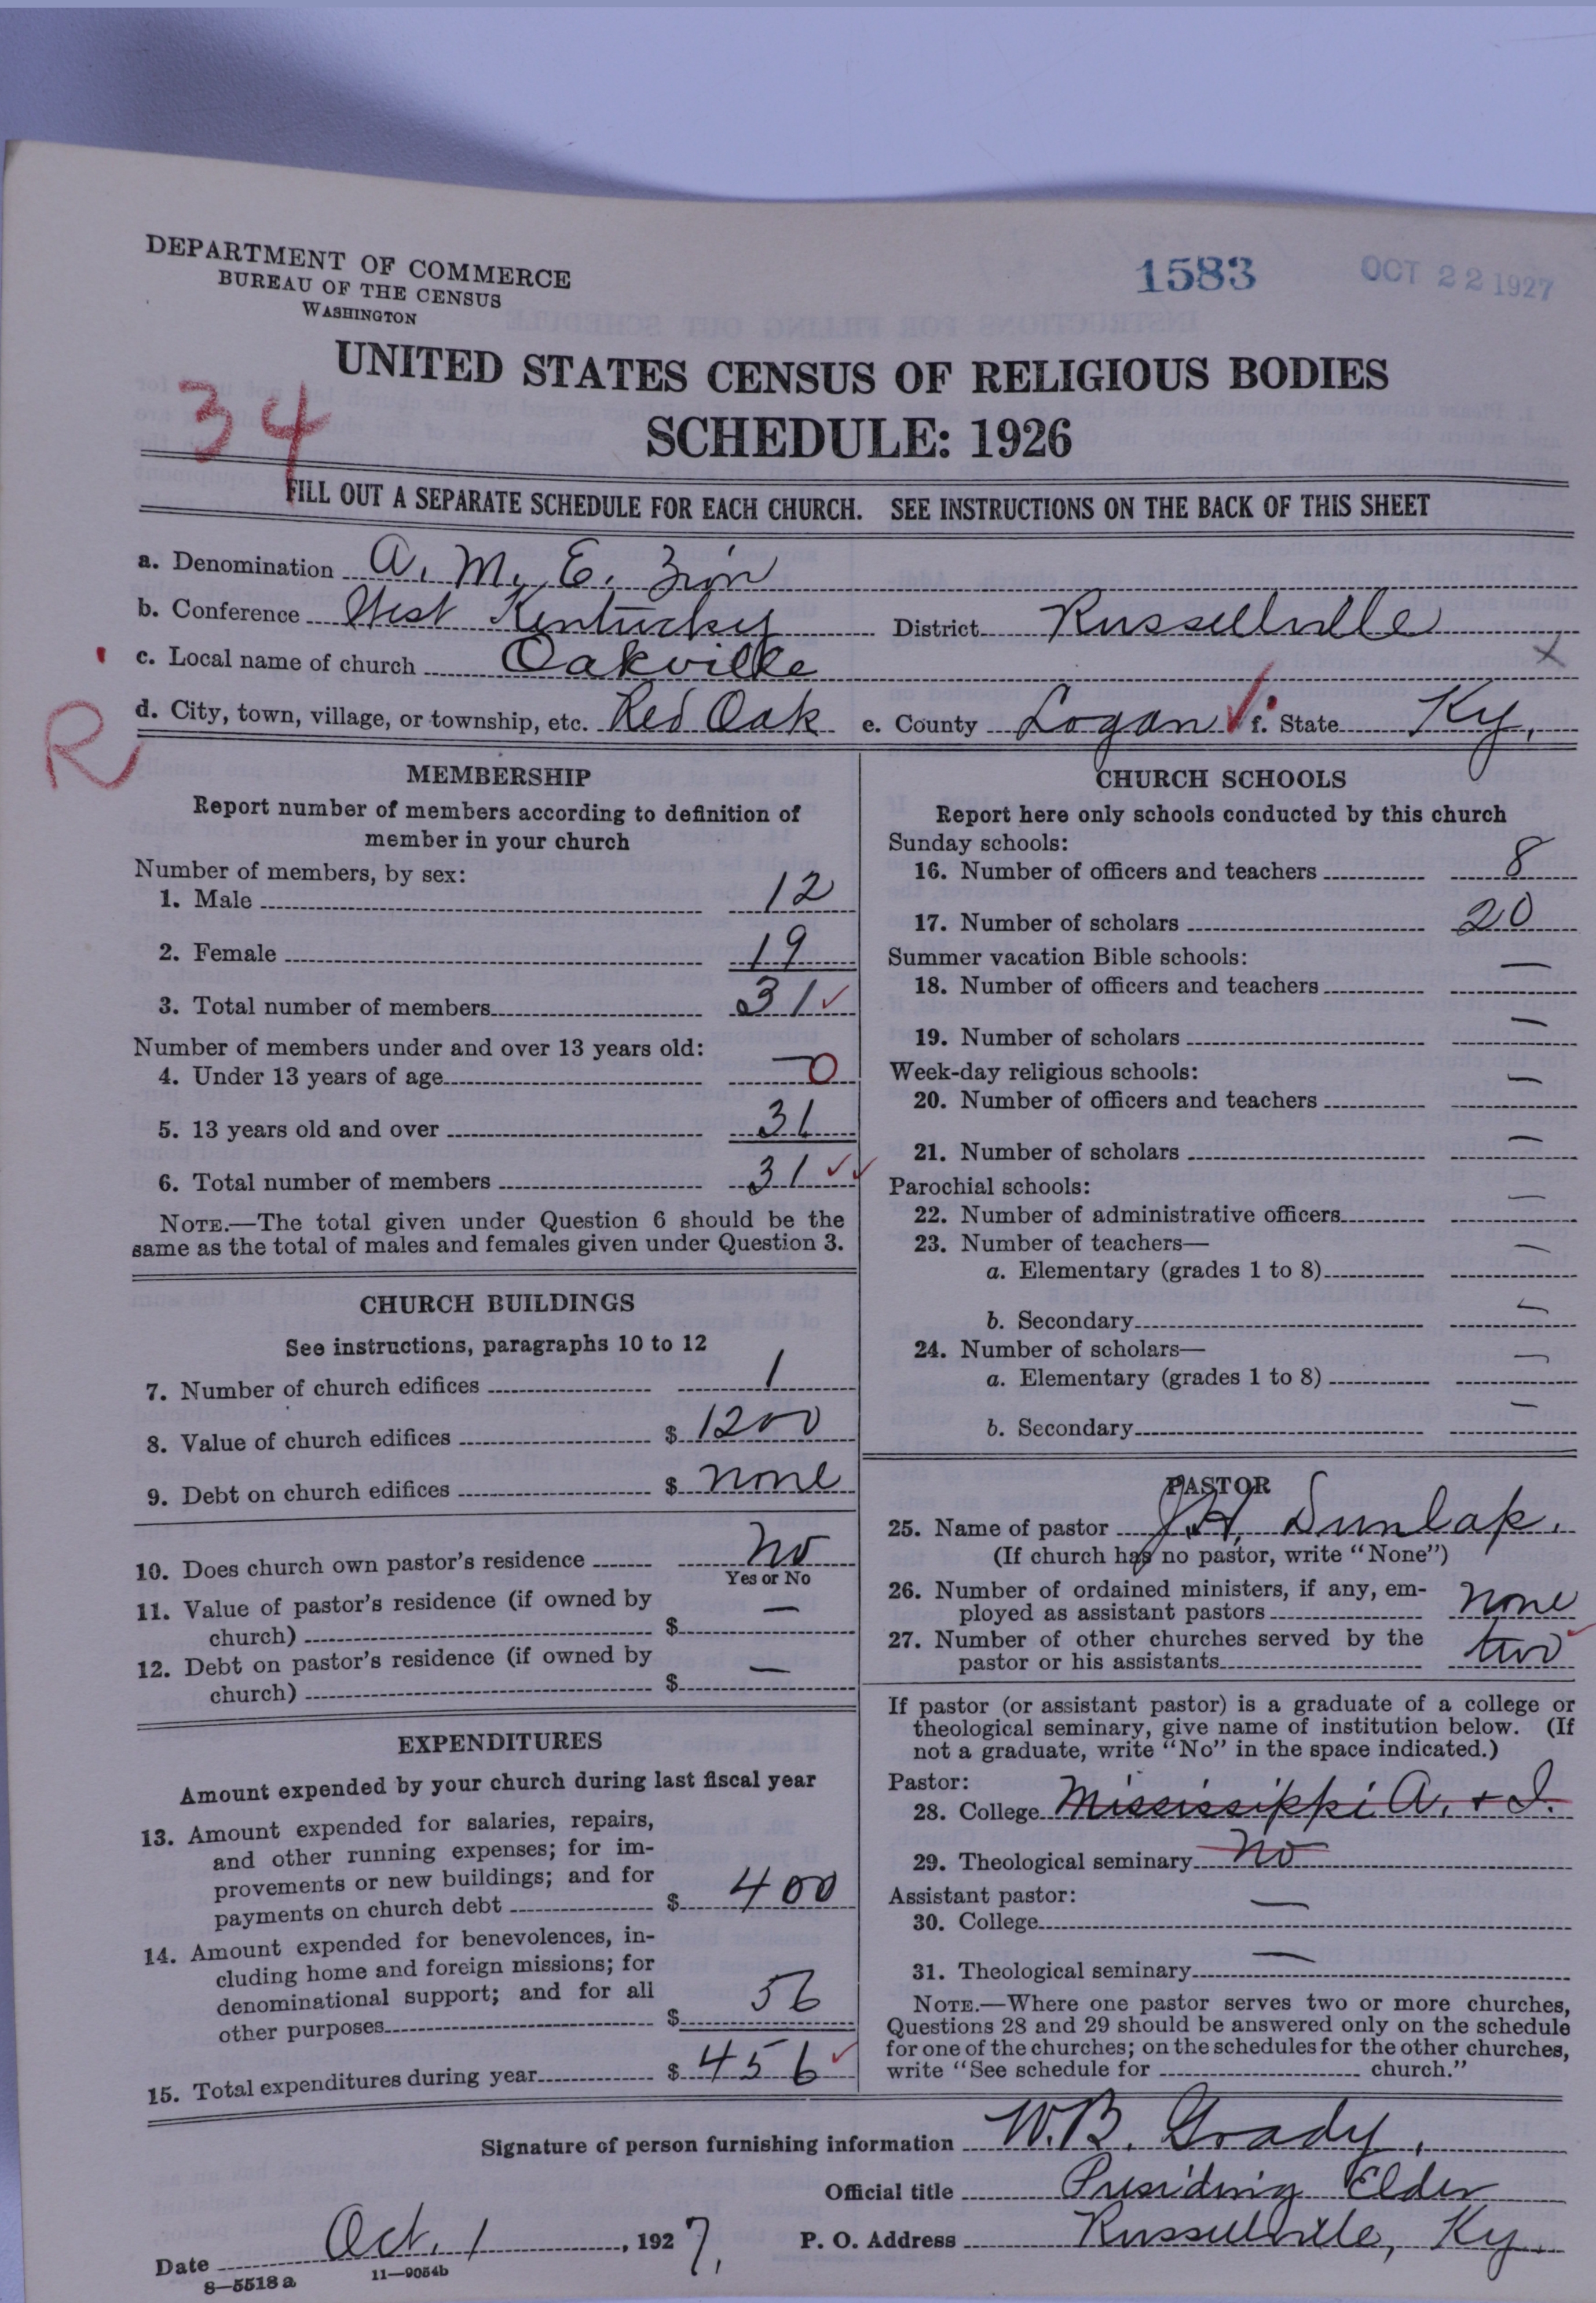 DEPARTMENT OF COMMERCE
BUREAU OF THE CENSUS
WASHINGTON
1583
OCT 22 1927
UNITED STATES CENSUS OF RELIGIOUS BODIES
34
SCHEDULE: 1926
FILL OUT A SEPARATE SCHEDULE FOR EACH CHURCH. SEE INSTRUCTIONS ON THE BACK OF THIS SHEET
a. Denomination A. M. E. Zion
b. Conference West Kentucky District Russellville
c. Local name of church Oakville X
R
d. City, town, village, or township, etc. Red Oak e. County Logan f. State Ky.
MEMBERSHIP
Report number of members according to definition of
member in your church
Number of members, by sex:
1. Male 12
2. Female 19
3. Total number of members 31 ✓
Number of members under and over 13 years old:
4. Under 13 years of age — 0
5. 13 years old and over 31
6. Total number of members 31 ✓ ✓
NOTE.—The total given under Question 6 should be the
same as the total of males and females given under Question 3.
CHURCH BUILDINGS
See instructions, paragraphs 10 to 12
7. Number of church edifices 1
8. Value of church edifices $ 1200
9. Debt on church edifices $ none
10. Does church own pastor's residence No
Yes or No
11. Value of pastor's residence (if owned by
church) $ —
12. Debt on pastor's residence (if owned by
church) $ —
EXPENDITURES
Amount expended by your church during last fiscal year
13. Amount expended for salaries, repairs,
and other running expenses; for im-
provements or new buildings; and for
payments on church debt $ 400
14. Amount expended for benevolences, in-
cluding home and foreign missions; for
denominational support; and for all
other purposes $ 56
15. Total expenditures during year $ 456 ✓
CHURCH SCHOOLS
Report here only schools conducted by this church
Sunday schools:
16. Number of officers and teachers 8
17. Number of scholars 20
Summer vacation Bible schools:
18. Number of officers and teachers —
19. Number of scholars —
Week-day religious schools:
20. Number of officers and teachers —
21. Number of scholars —
Parochial schools:
22. Number of administrative officers —
23. Number of teachers—
a. Elementary (grades 1 to 8) —
b. Secondary —
24. Number of scholars—
a. Elementary (grades 1 to 8) —
b. Secondary —
PASTOR
25. Name of pastor J. H. Dunlap.
(If church has no pastor, write "None")
26. Number of ordained ministers, if any, em-
ployed as assistant pastors none
27. Number of other churches served by the
pastor or his assistants two ✓
If pastor (or assistant pastor) is a graduate of a college or
theological seminary, give name of institution below. (If
not a graduate, write "No" in the space indicated.)
Pastor:
28. College Mississippi A. + I.
29. Theological seminary No
Assistant pastor:
30. College —
31. Theological seminary —
NOTE.—Where one pastor serves two or more churches,
Questions 28 and 29 should be answered only on the schedule
for one of the churches; on the schedules for the other churches,
write "See schedule for church."
Signature of person furnishing information W. B. Grady,
Official title Presiding Elder
Date Oct. 1, 1927. P. O. Address Russellville, Ky.
8—5518 a 11—9054b